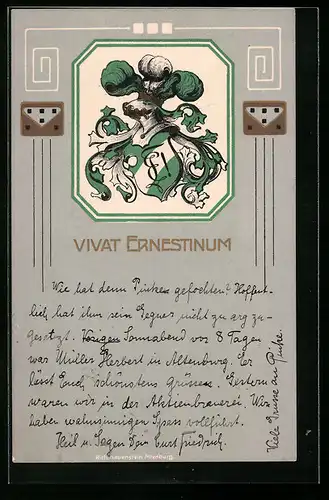 VIVAT ERNESTINUM
Wie hat denn Pinken gefochten? Hoffent-
lich hat ihm sein Gegner nicht zu arg zu-
gesetzt. Vorigen Sonnabend vor 8 Tagen
war Müllers Herbert in Altenburg. Er
lässt Euch schönstens grüssen. Gestern
waren wir in der Aktienbrauerei. Wir
haben wahnsinnigen Spass vollführt.
Heil u. Segen Dein Curt Friedrich.
Viele Grüsse an Pinke.